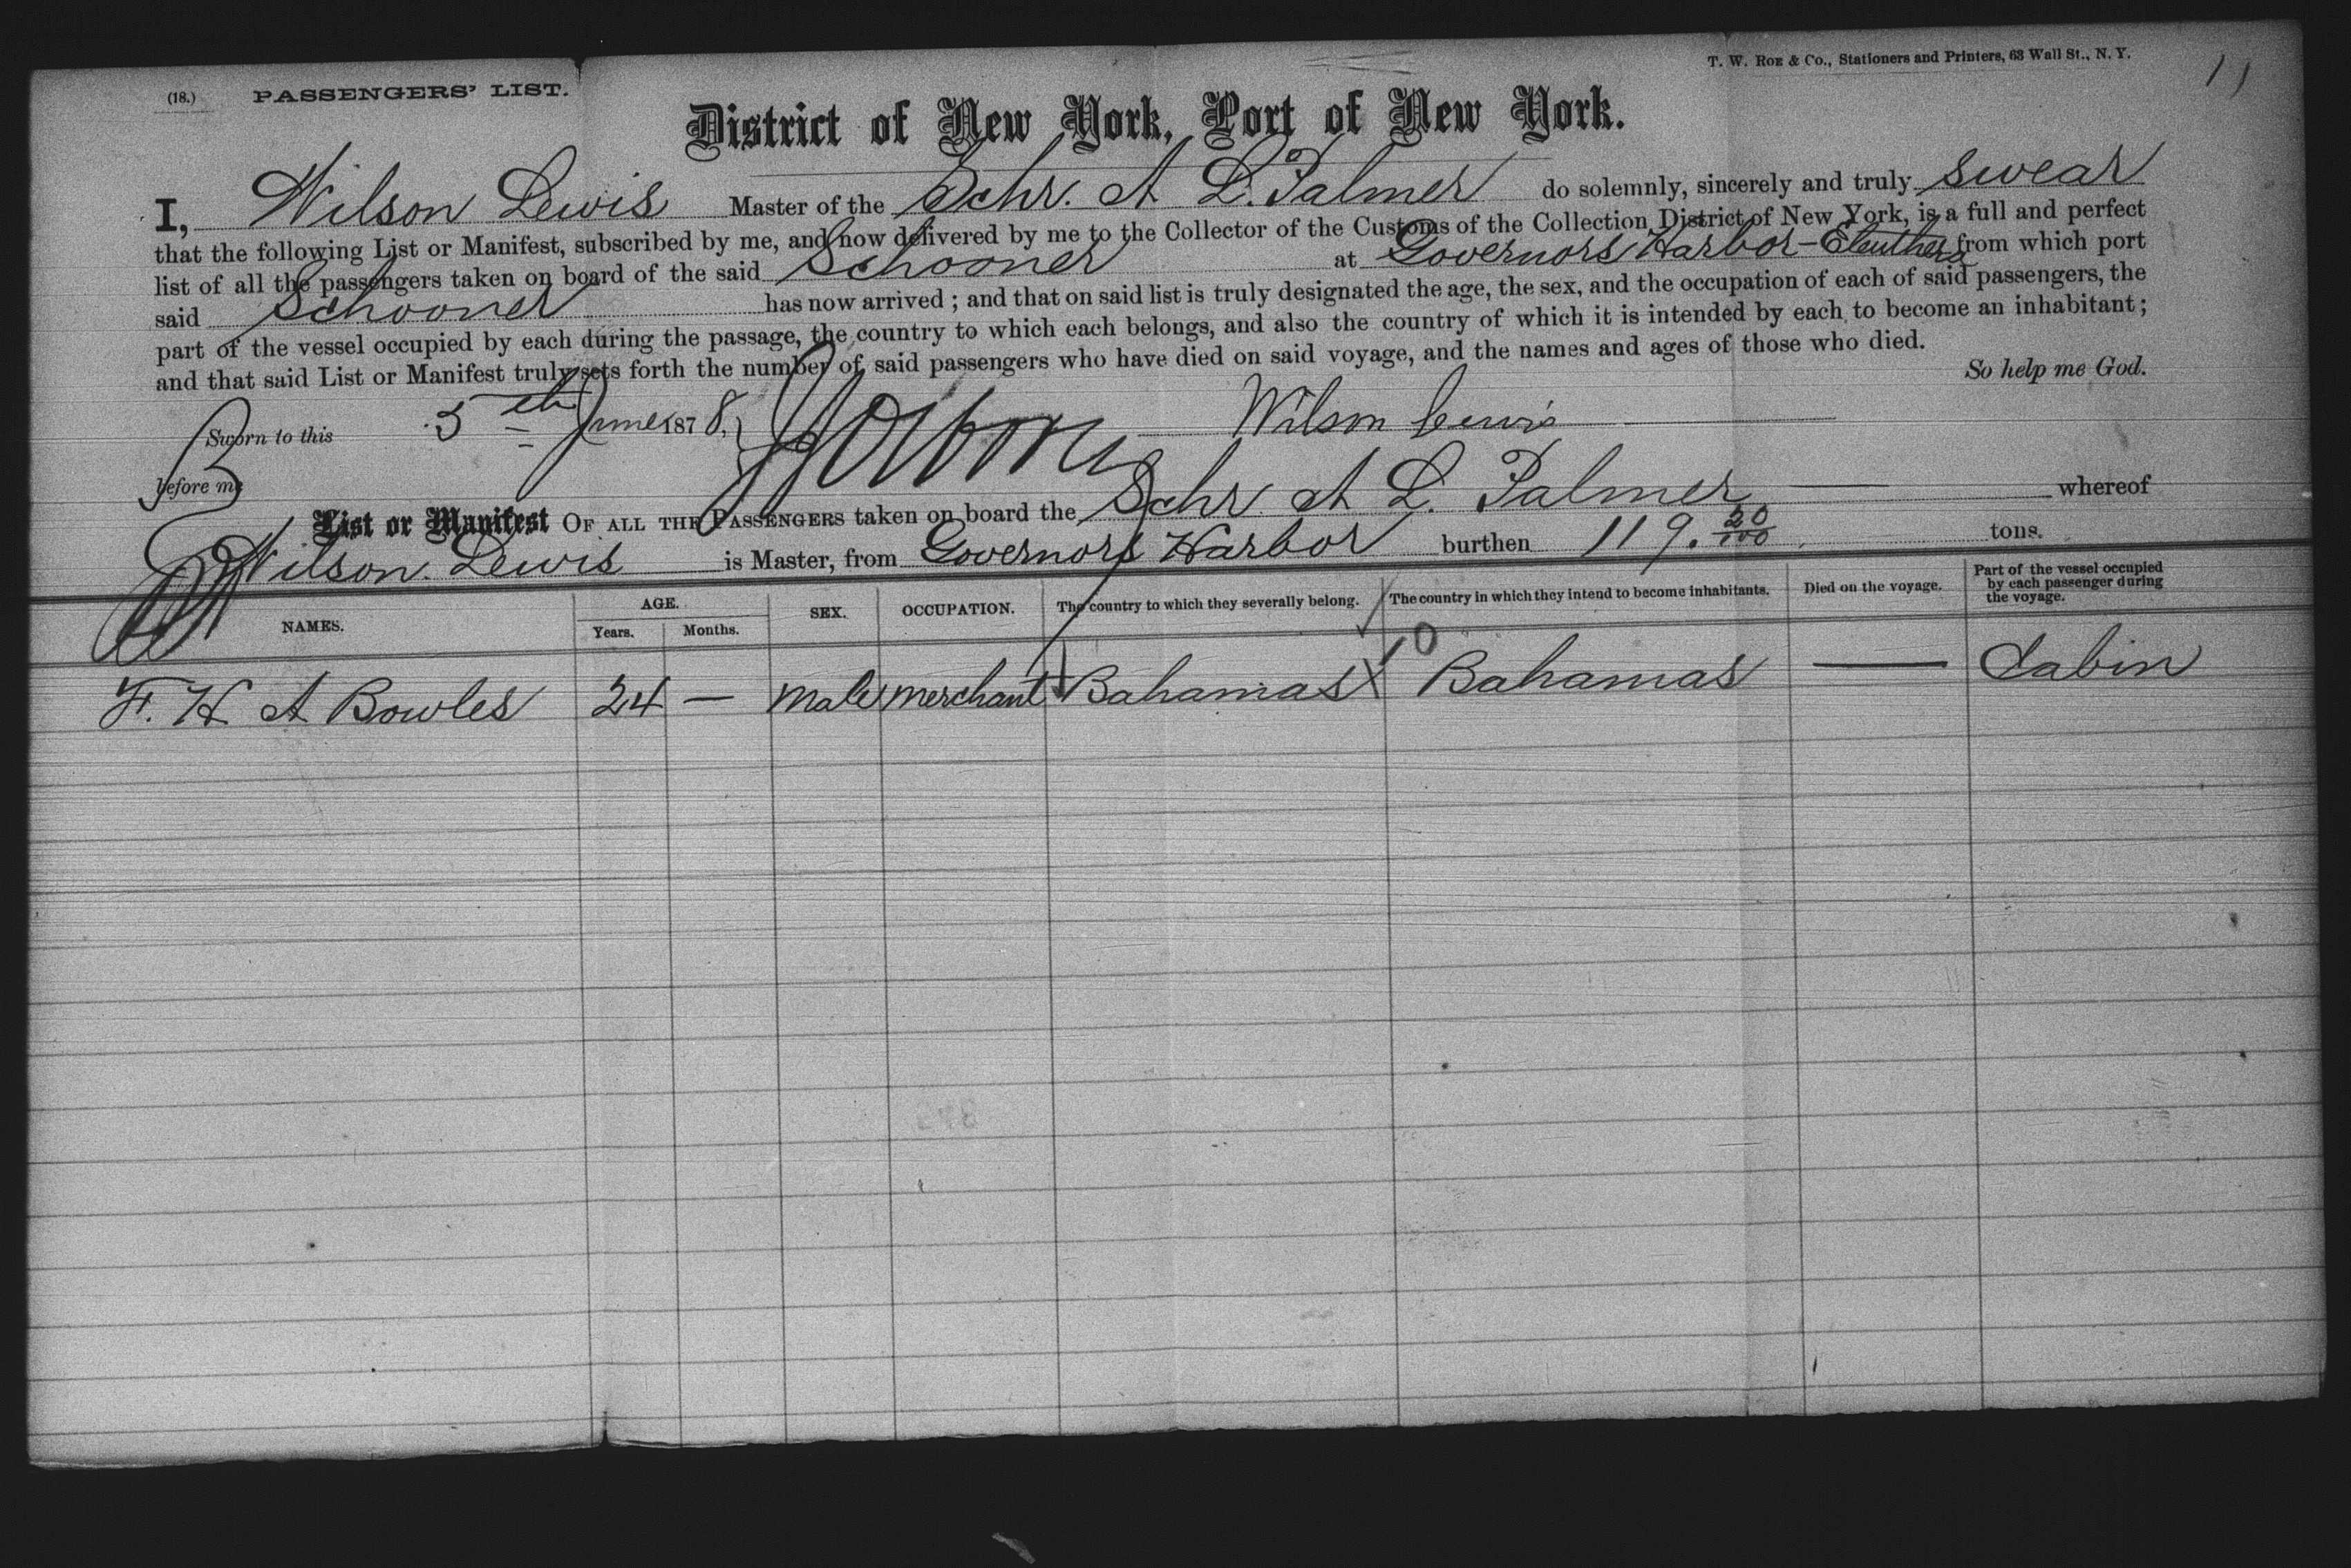 (18.) PASSENGERS' LIST.
T. W. ROE & Co., Stationers and Printers, 63 Wall St., N. Y.
District of New York, Port of New York.
I, Wilson Lewis Master of the Schr. A L. Palmer do solemnly, sincerely and truly swear
that the following List or Manifest, subscribed by me, and now delivered by me to the Collector of the Customs of the Collection District of New York, is a full and perfect
list of all the passengers taken on board of the said Schooner at Governors Harbor - Eleuthera from which port
said Schooner has now arrived; and that on said list is truly designated the age, the sex, and the occupation of each of said passengers, the
part of the vessel occupied by each during the passage, the country to which each belongs, and also the country of which it is intended by each to become an inhabitant;
and that said List or Manifest truly sets forth the number of said passengers who have died on said voyage, and the names and ages of those who died.
So help me God.
Sworn to this 5th June 1878, Wilson Lewis
before me
List or Manifest OF ALL THE PASSENGERS taken on board the Schr A L. Palmer whereof
Wilson Lewis is Master, from Governors Harbor burthen 119. 20/100 tons.
NAMES. AGE. Years. Months. SEX. OCCUPATION. The country to which they severally belong. The country in which they intend to become inhabitants. Died on the voyage. Part of the vessel occupied by each passenger during the voyage.
10
F. H A Bowles 24 — Male merchant Bahamas Bahamas — Cabin